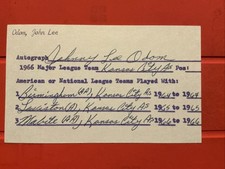 Odom, John Lee
Autograph Johnny Lee Odom
1966 Major League Team Kansas City A's Pos:
American or National League Teams Played With:
1 Birmingham (AA), Kansas City A's 1964 to 1964
2 Lewiston (A), Kansas City A's 1965 to 1965
3 Mobile (AA), Kansas City A's 1966 to 1966